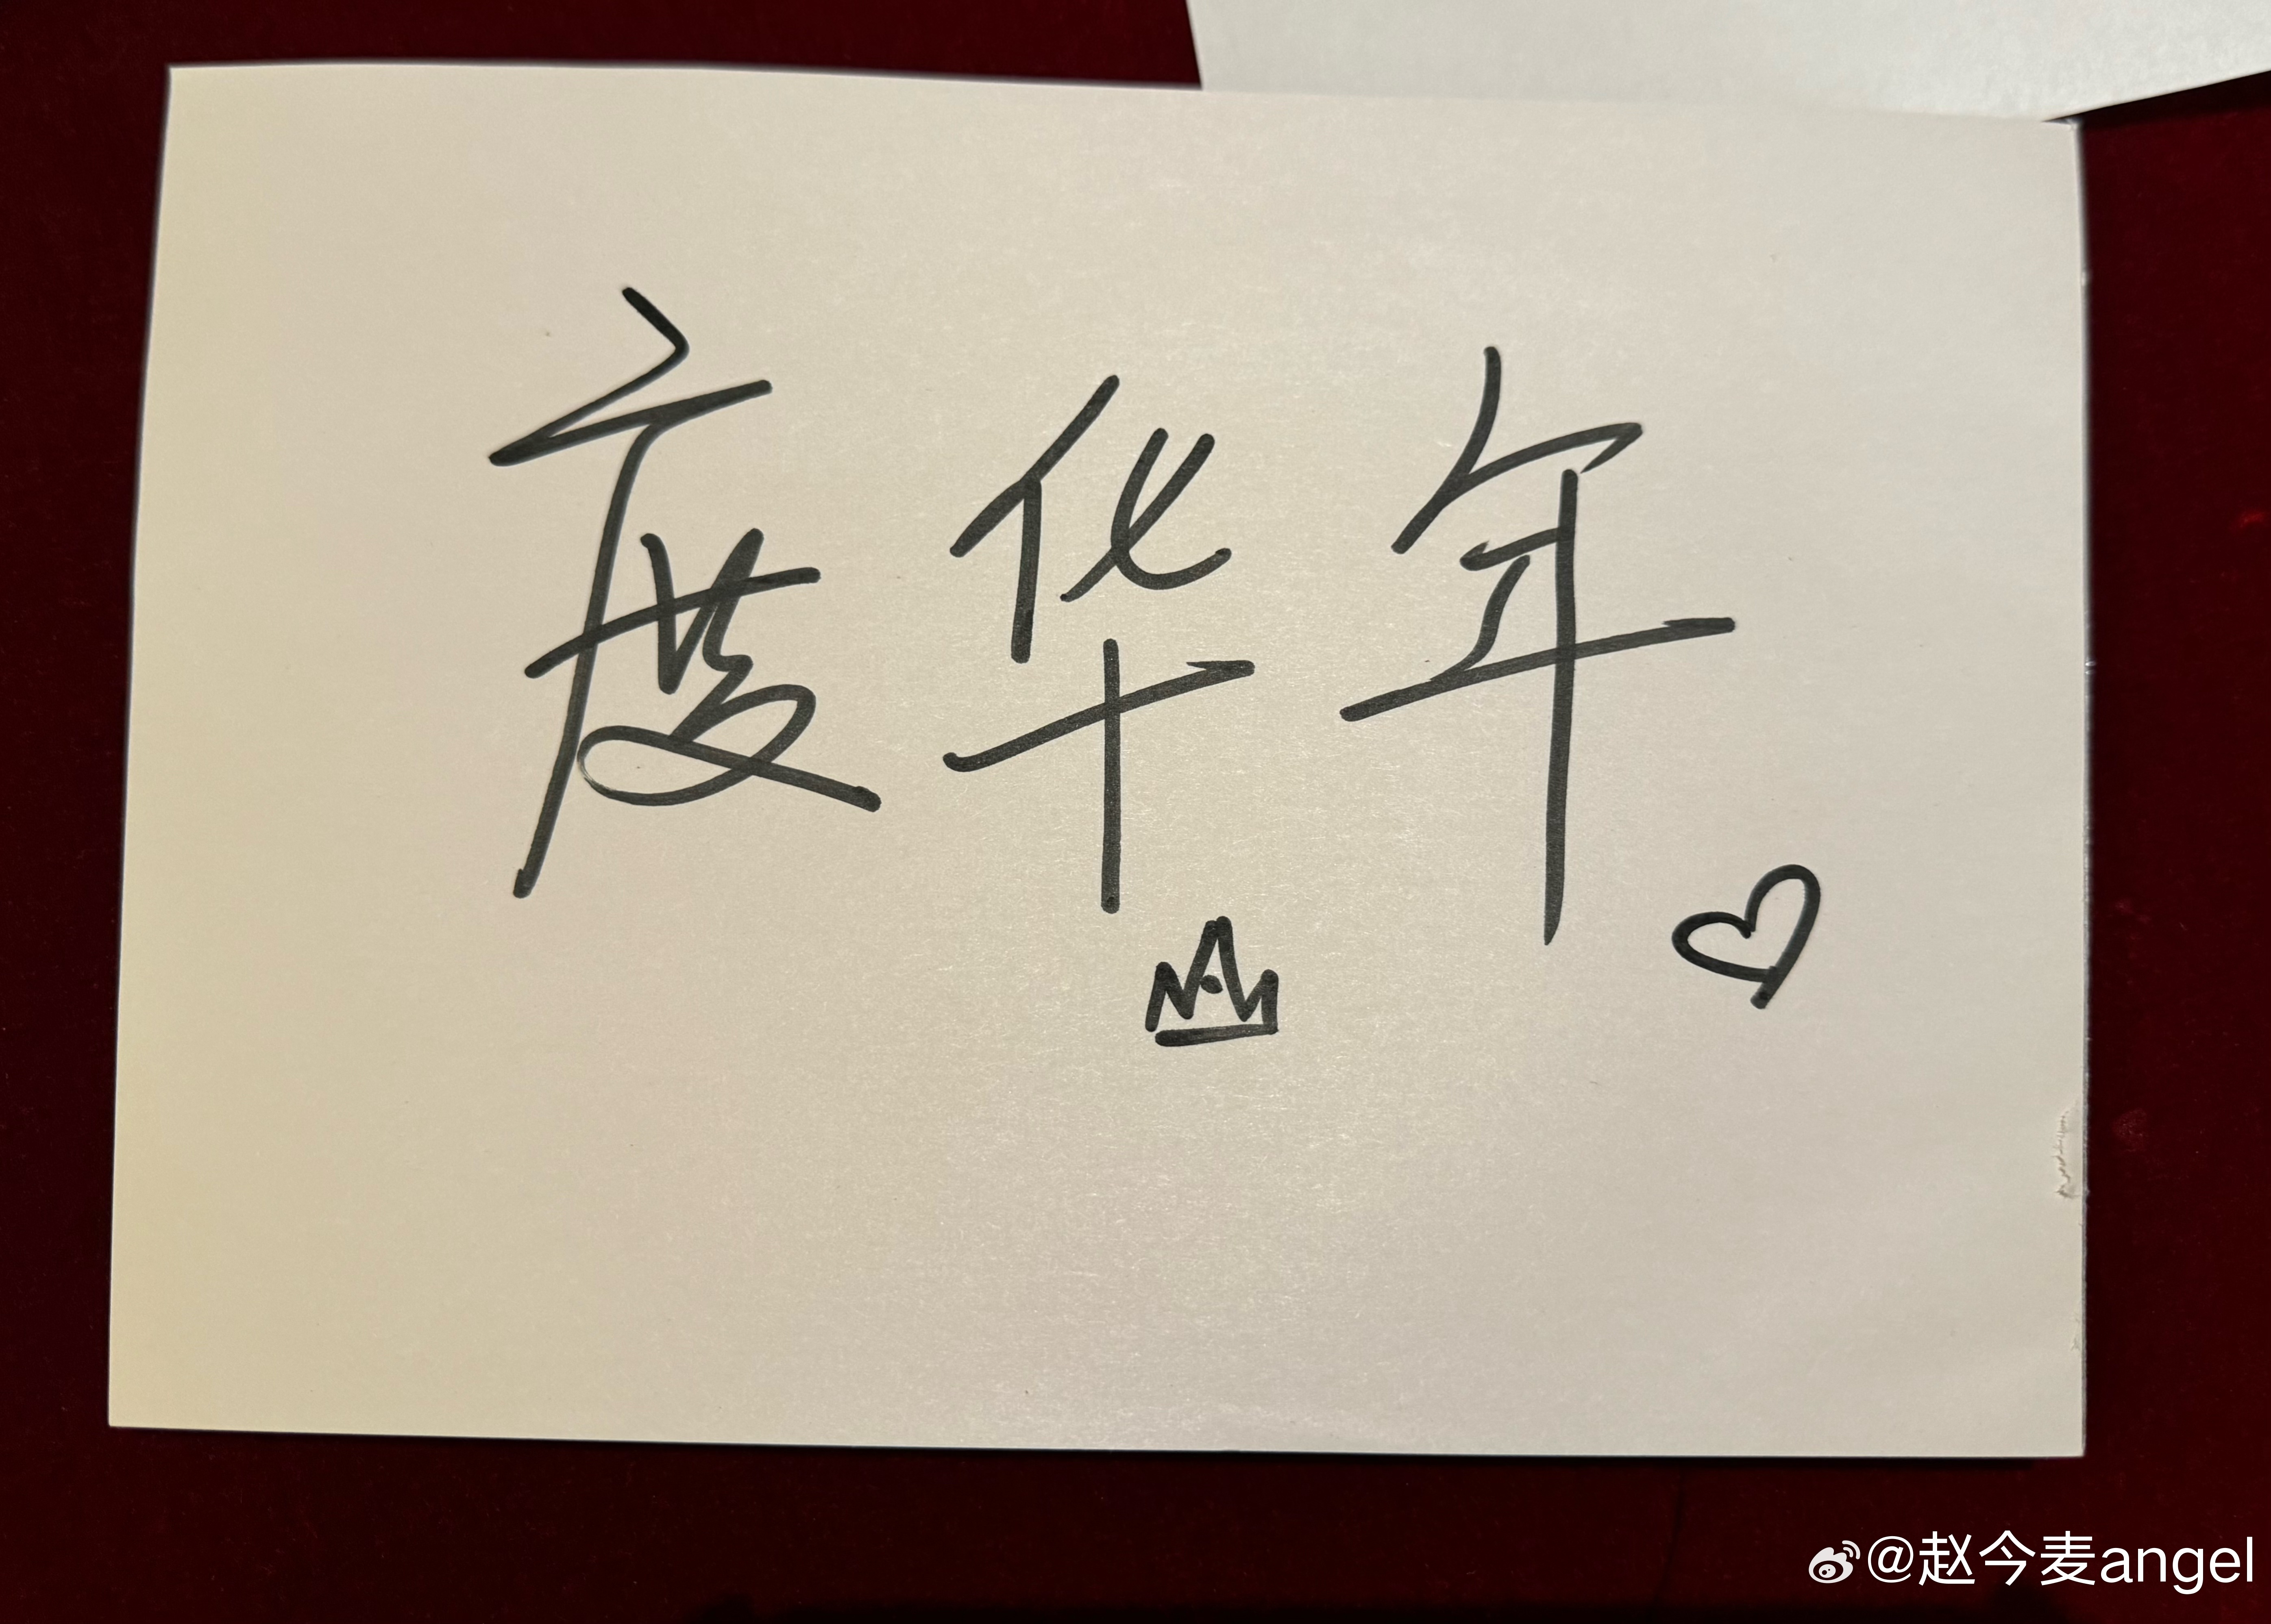 度华年
@赵今麦angel